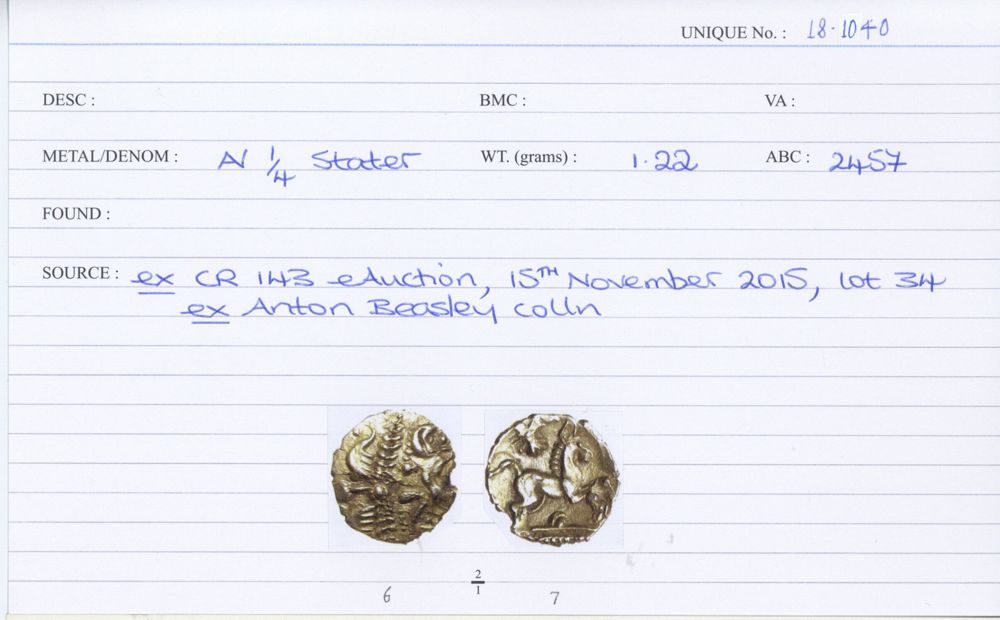 UNIQUE No. : 18·1040
DESC : BMC : VA :
METAL/DENOM : AV 1/4 Stater WT. (grams) : 1.22 ABC : 2457
FOUND :
SOURCE : ex CR 143 eAuction, 15TH November 2015, lot 34
ex Anton Beasley colln
2/1
6 7